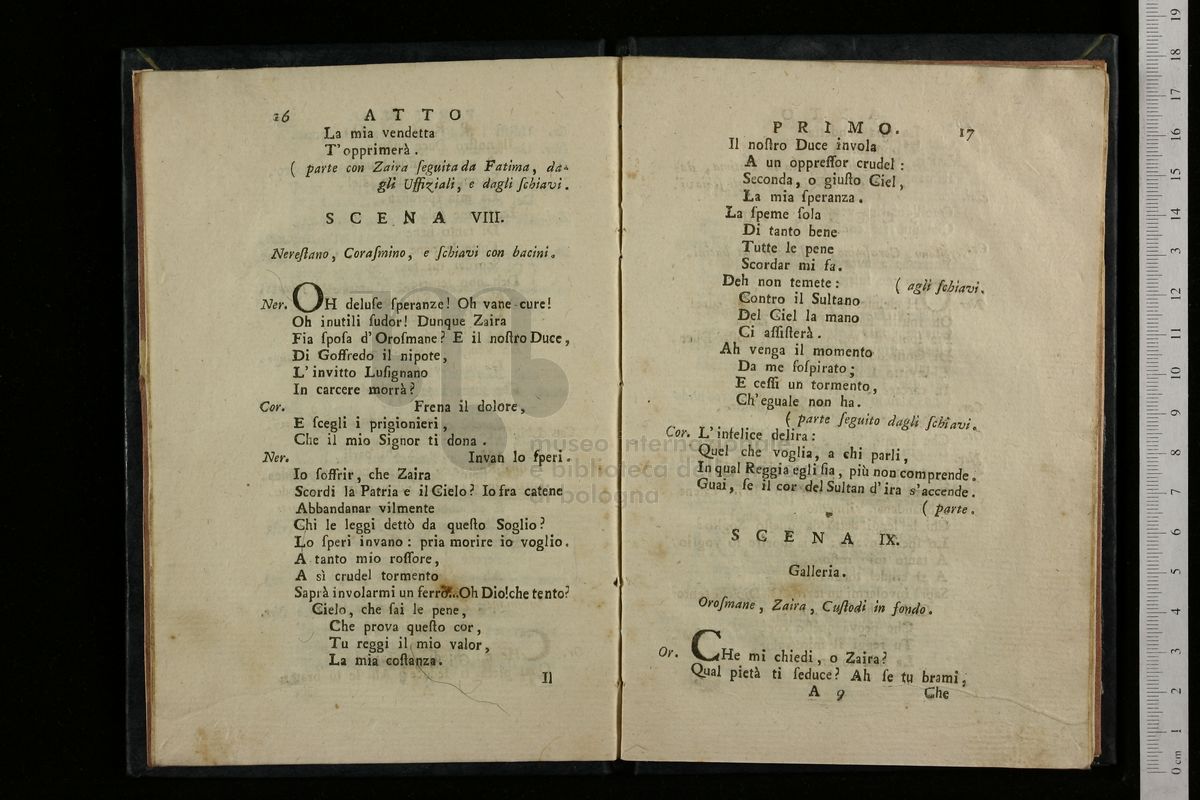 16 ATTO
La mia vendetta
T'opprimerà.
( parte con Zaira ſeguita da Fatima, da-
gli Uffiziali, e dagli ſchiavi.
SCENA VIII.
Nereſtano, Coraſmino, e ſchiavi con bacini.
Ner. OH deluſe ſperanze! Oh vane cure!
Oh inutili ſudor! Dunque Zaira
Fia ſpoſa d'Oroſmane? E il noſtro Duce,
Di Goffredo il nipote,
L'invitto Luſignano
In carcere morrà?
Cor. Frena il dolore,
E ſcegli i prigionieri,
Che il mio Signor ti dona.
Ner. Invan lo ſperi.
Io ſoffrir, che Zaira
Scordi la Patria e il Cielo? Io fra catene
Abbandanar vilmente
Chi le leggi dettò da queſto Soglio?
Lo ſperi invano: pria morire io voglio.
A tanto mio roſſore,
A sì crudel tormento
Saprà involarmi un ferro...Oh Dio! che tento?
Cielo, che ſai le pene,
Che prova queſto cor,
Tu reggi il mio valor,
La mia coſtanza.
Il
PRIMO. 17
Il noſtro Duce invola
A un oppreſſor crudel:
Seconda, o giuſto Ciel,
La mia ſperanza.
La ſpeme ſola
Di tanto bene
Tutte le pene
Scordar mi fa.
Deh non temete: ( agli ſchiavi.
Contro il Sultano
Del Ciel la mano
Ci aſſiſterà.
Ah venga il momento
Da me ſoſpirato;
E ceſſi un tormento,
Ch'eguale non ha.
( parte ſeguito dagli ſchiavi.
Cor. L'infelice delira:
Quel che voglia, a chi parli,
In qual Reggia egli ſia, più non comprende.
Guai, ſe il cor del Sultan d'ira s'accende.
( parte.
SCENA IX.
Galleria.
Oroſmane, Zaira, Cuſtodi in fondo.
Or. CHe mi chiedi, o Zaira?
Qual pietà ti ſeduce? Ah ſe tu brami,
A 9 Che
museo internazionale
e biblioteca della
di bologna
0 cm 1 2 3 4 5 6 7 8 9 10 11 12 13 14 15 16 17 18 19